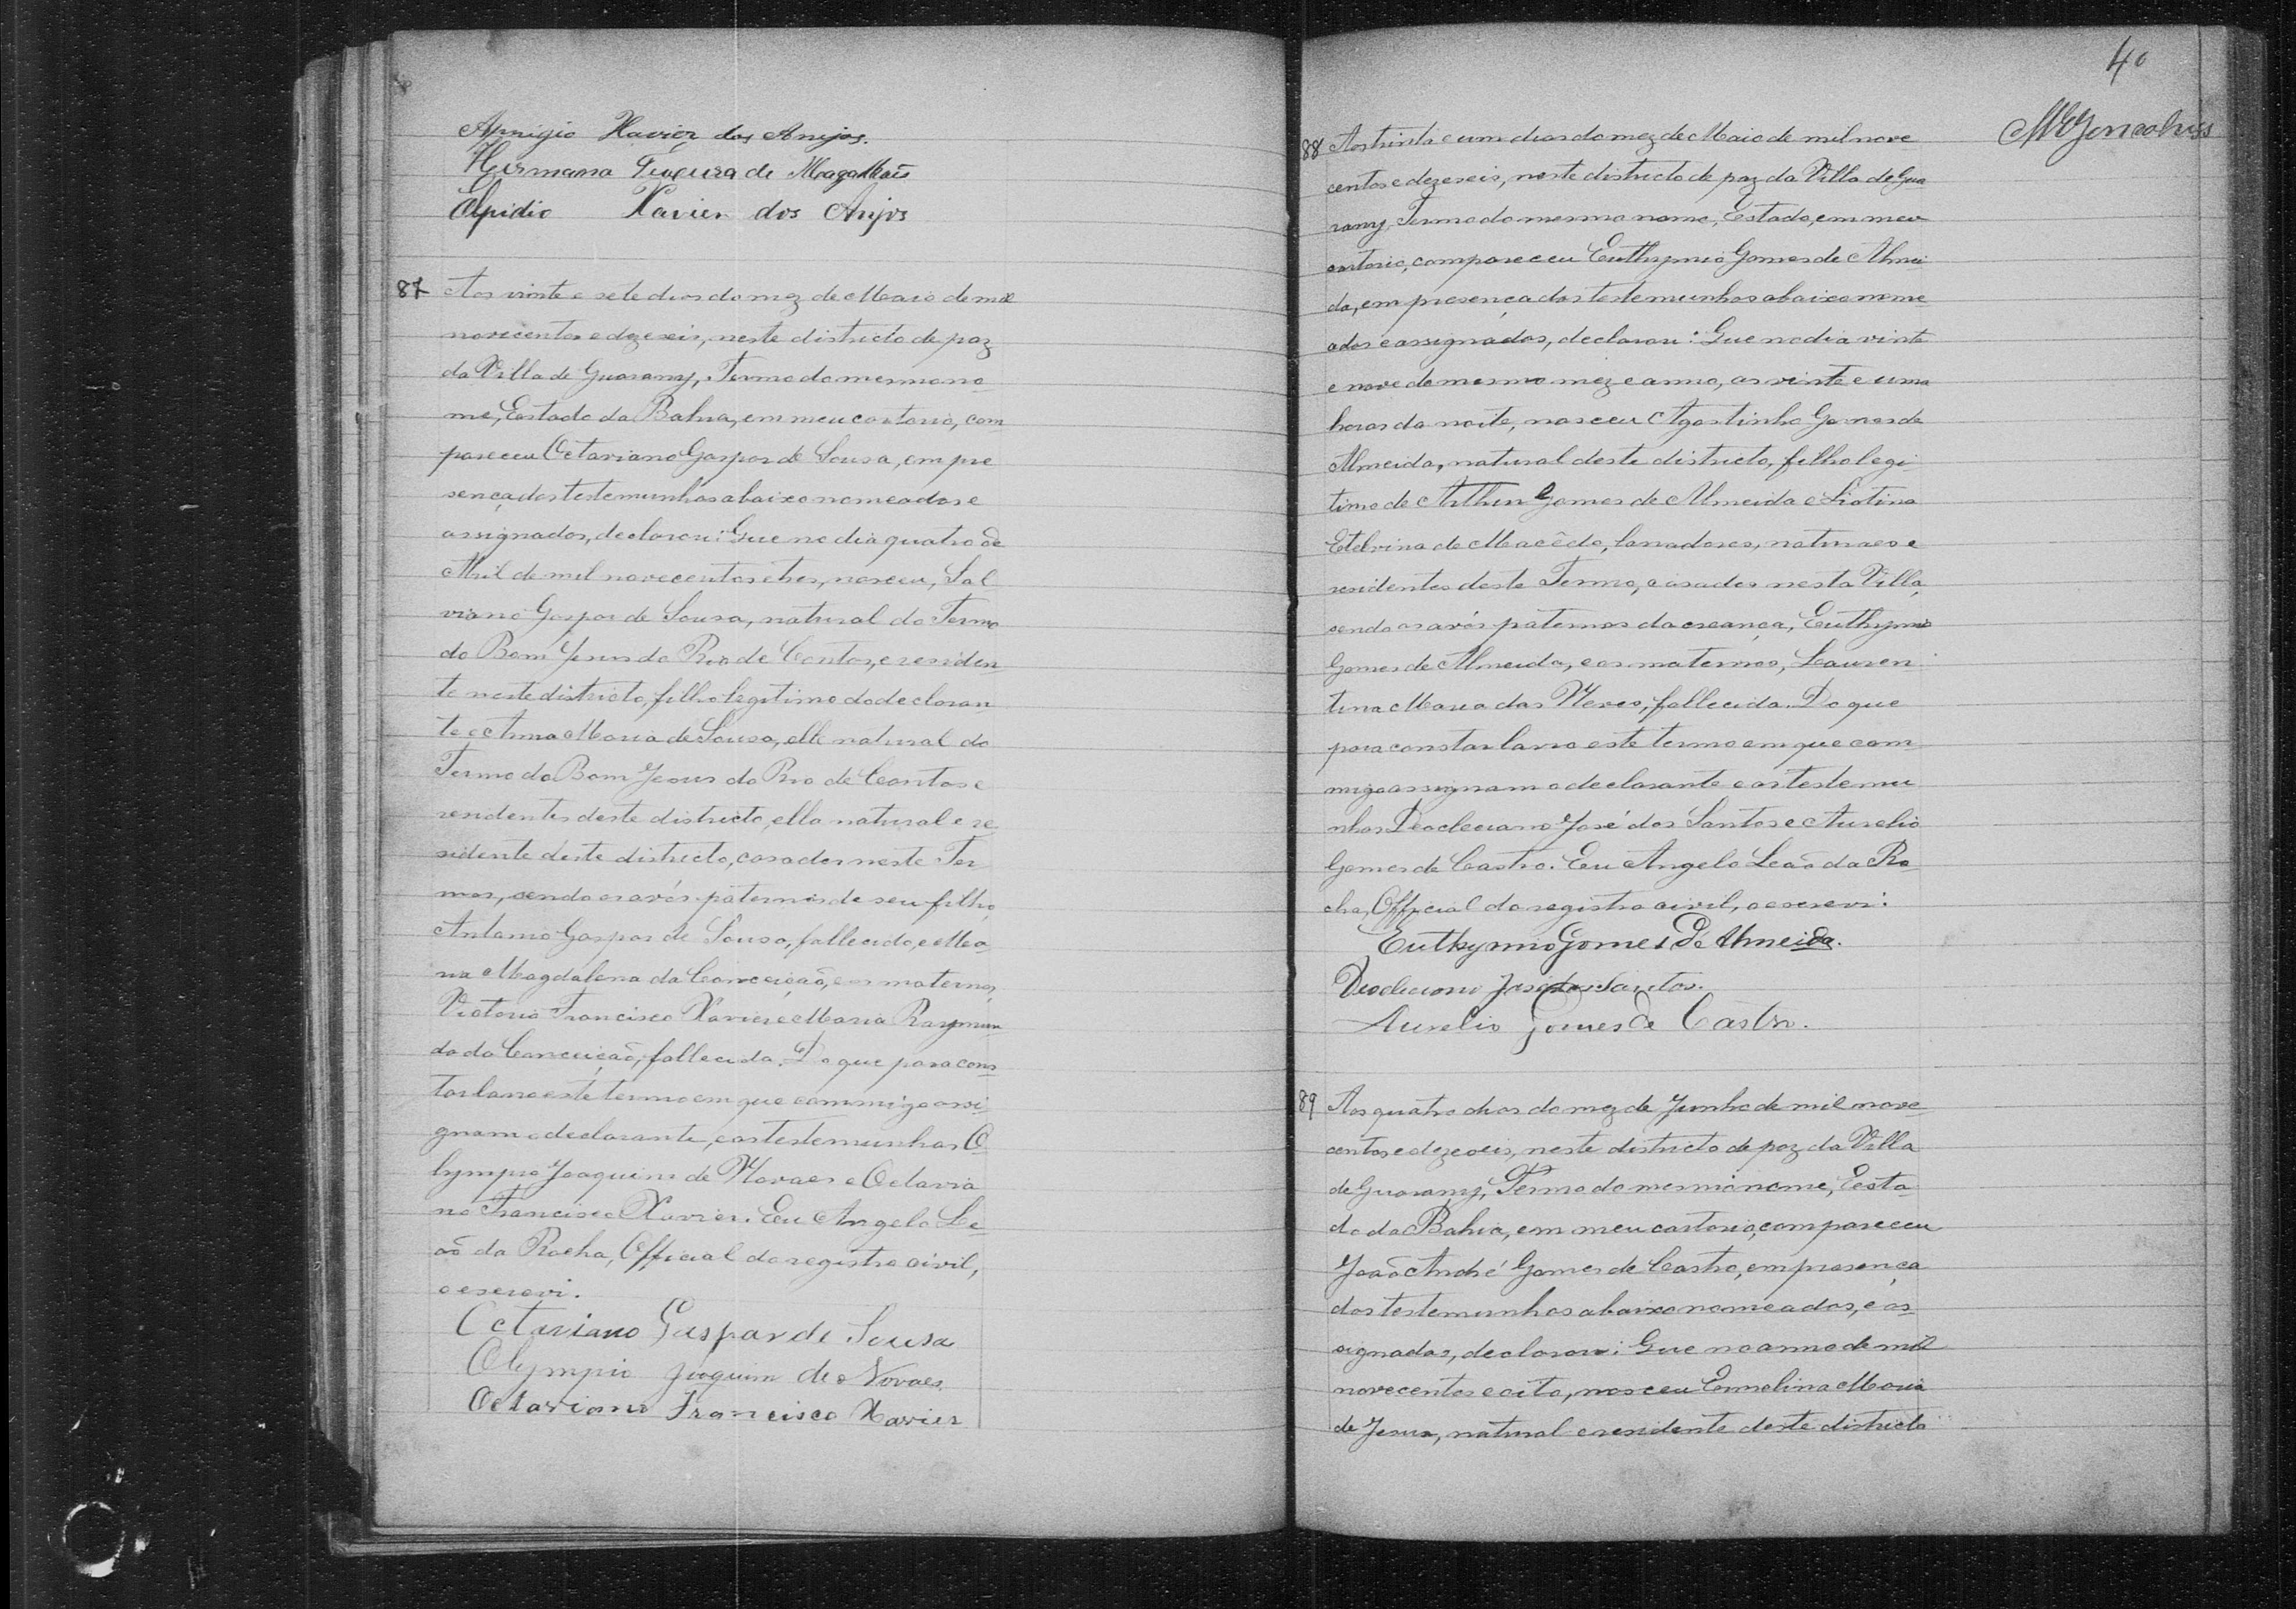 Aprigio Xavier dos Anjos.
Hermano Teixeira de Magalhães
Elpidio Xavier dos Anjos
87 Aos vinte e sete dias do mez de Maio de mil
novecentos e dezeseis, neste districto de paz
da Villa de Guarany, Termo do mesmo no
me, Estado da Bahia, em meu cartorio, com
pareceu Octaviano Gaspar de Sousa, em pre
sença das testemunhas abaixo nomeadas e
assignadas, declarou: Que no dia quatro de
Abril de mil novecentos e tres, nasceu, Sal
viano Gaspar de Sousa, natural do Termo
do Bom Jesus do Rio de Contas, e residen
te neste districto, filho legitimo do declaran
te e Anna Maria de Sousa, elle natural do
Termo do Bom Jesus do Rio de Contas e
residentes deste districto, ella natural e re
sidente deste districto, casados neste Ter
mos, sendo os avós paternos de seu filho,
Antonio Gaspar de Sousa, fallecido, e Ma
ria Magdalena da Conceição, e os maternos,
Victorio Francisco Xavier e Maria Raymun
da da Conceição, fallecida. Do que para cons
tar lavro este termo em que commigo assi
gnam o declarante, e as testemunhas O
lympio Joaquim de Novaes e Octavia
no Francisco Xavier. Eu Angelo Le
aõ da Rocha, Official do registro civil,
o escrevi.
Octaviano Gaspar de Sousa
Olympio Juaquim de Novaes
Octaviano Francisco Xavier
40
MGonsalves
88 Aos trinta e um dias do mez de Maio de mil nove
centos e dezeseis, neste districto de paz da Villa de Gua
rany, Termo do mesmo nome, Estado, em meu
cartorio, compareceu Euthymio Gomes de Almei
da, em presença das testemunhas abaixo nome
adas e assignadas, declarou: Que no dia vinte
e nove do mesmo mez e anno, as vinte e uma
horas da noite, nasceu Agostinho Gomes de
Almeida, natural deste districto, filho legi
timo de Arthur Gomes de Almeida e Liotina
Etelvina de Macêdo, lavradores, naturaes e
residentes deste Termo, casados nesta Villa,
sendo os avós paternos da creança, Euthymio
Gomes de Almeida, e os maternos, Lauren
tina Maria das Neves, fallecida. Do que
para constar lavro este termo em que com
migo assignam o declarante e as testemu
nhas Deocleciano José dos Santos e Aurelio
Gomes de Castro. Eu Angelo Leaõ da Ro
cha, Official do registro civil, o escrevi.
Euthymio Gomes de Almeida.
Deocleciano José dos Santos.
Aurelio Gomes de Castro.
89 Aos quatro dias do mez de Junho de mil nove
centos e dezeseis, neste districto de paz da Villa
de Guarany, Termo do mesmo nome, Esta
do da Bahia, em meu cartorio, compareceu
João André Gomes de Castro, em presença
das testemunhas abaixo nomeadas, e as
signadas, declarou: Que no anno de mil
novecentos e oito, nasceu Ermelina Maria
de Jesus, natural e residente deste districto